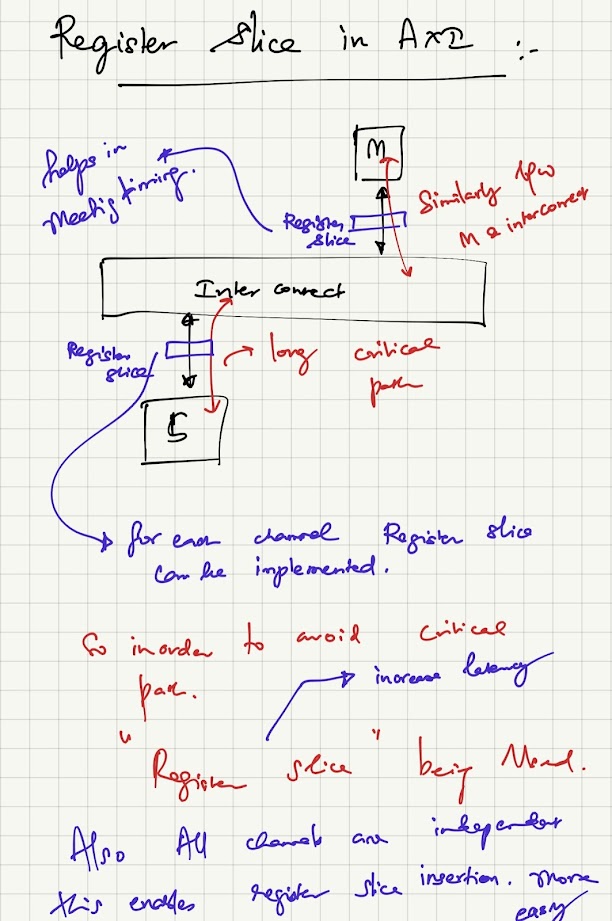 Register Slice in AXI :-
helps in
meeting timing.
M
Register
slice
Similarly b/w
M & interconnect
Inter connect
Register
slice
long critical
path
S
for each channel Register slice
can be implemented.
So inorder to avoid critical
path.
increase latency
" Register slice " being used.
Also All channels are independent
this enables register slice insertion. more
easy